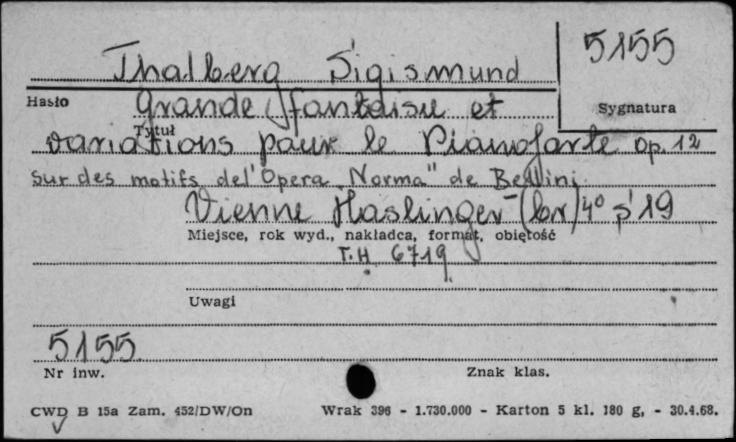 5155
Thalberg Sigismund
Hasło
Sygnatura
Grande fantaisie et
Tytuł
variations pour le Pianoforte op. 12
sur des motifs de l'Opera „Norma" de Bellini
Vienne Haslinger (br) 4° s 19
Miejsce, rok wyd., nakładca, format, objętość
T.H. 6719
Uwagi
5155
Nr inw.
Znak klas.
CWD B 15a Zam. 452/DW/On Wrak 396 - 1.730.000 - Karton 5 kl. 180 g, - 30.4.68.